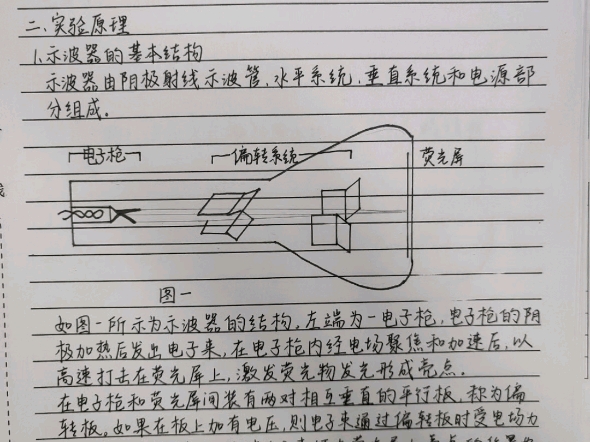 二、实验原理
1、示波器的基本结构
示波器由阴极射线示波管,水平系统,垂直系统和电源部
分组成.
电子枪 偏转系统 荧光屏
图一
如图一所示为示波器的结构,左端为一电子枪,电子枪的阴
极加热后发出电子来,在电子枪内经电场聚焦和加速后,以
高速打击在荧光屏上,激发荧光物发光形成亮点.
在电子枪和荧光屏间装有两对相互垂直的平行板,称为偏
转板。如果在板上加有电压,则电子来通过偏转板时受电场力